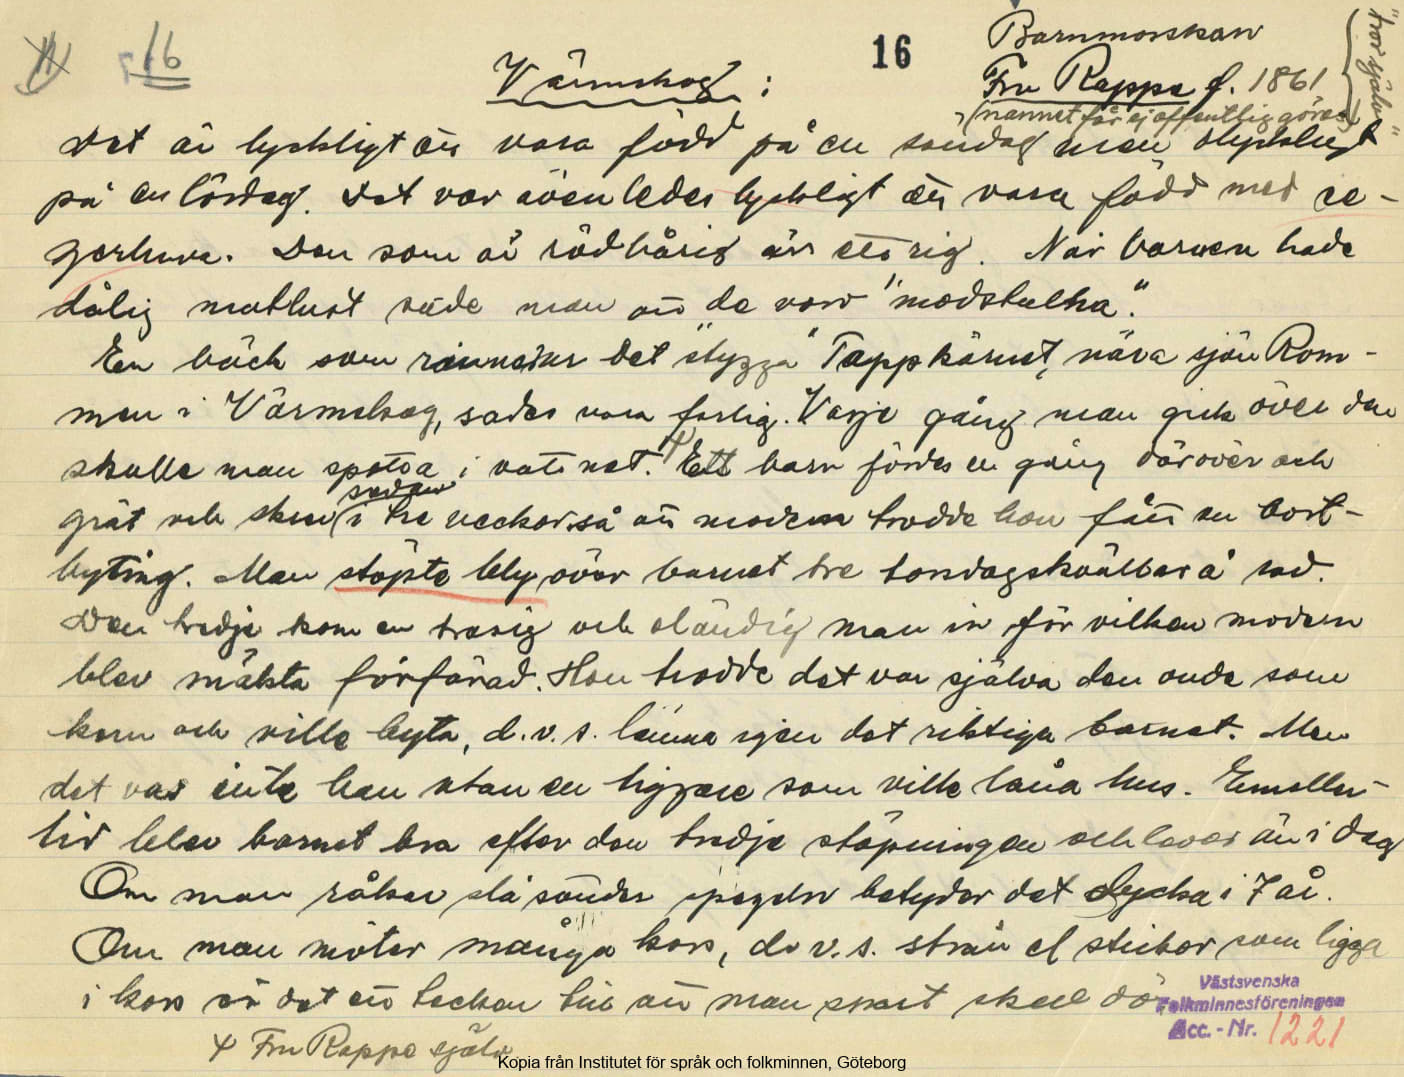 16
16
Barnmorskan
Värmskog :
Fru Rappe f. 1861
"tror själv"
(namnet får ej offentliggöras)
Det är lyckligt att vara född på en söndag men olyckligt
på en lördag. Det var även ledes lyckligt att vara född med se-
gerhuva. Den som är rödhårig är etterig. När barnen hade
dålig matlust sade man att de voro "modstulna".
En bäck som rinner ur det "stygga" Tappkärnet, nära sjön Rom-
men i Värmskog, sades vara farlig. Varje gång man gick över den
skulle man spotta i vattnet. + Ett barn fördes en gång däröver och
grät och skrek sedan i tre veckor, så att modern trodde hon fått en bort-
byting. Man stöpte bly över barnet tre torsdagskvällar å rad.
Den tredje kom en trasig och eländig man in för vilken modern
blev mäkta förfärad. Hon trodde det var själva den onde som
kom och ville byta, d.v.s. lämna igen det riktiga barnet. Men
det var inte han utan en tiggare som ville låna hus. Emeller-
tid blev barnet bra efter den tredje stöpningen och lever än i dag
Om man råkar slå sönder spegeln betyder det olycka i 7 år.
Om man möter många kors, d.v.s. strån el stickor som ligga
i kors är det ett tecken till att man snart skall dö.
+ Fru Rappe själv.
Västsvenska
Folkminnesföreningen
Acc. - Nr. 1221
Kopia från Institutet för språk och folkminnen, Göteborg